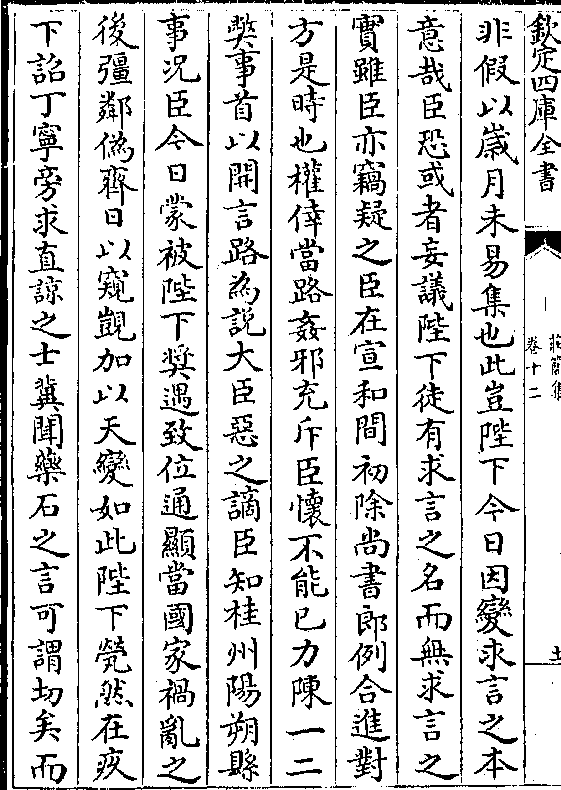 欽定四庫全書
莊簡集
卷十二
非假以嵗月未易集也此豈陛下今日因變求言之本
意哉臣恐或者妄議陛下徒有求言之名而無求言之
實雖臣亦竊疑之臣在宣和間初除尚書郎例合進對
方是時也權倖當路姦邪充斥臣懷不能已力陳一二
獘事首以開言路為說大臣惡之謫臣知桂州陽朔縣
事况臣今日蒙被陛下奬遇致位通顯當國家禍亂之
後彊鄰僞齊日以窺覬加以天變如此陛下煢然在疚
下詔丁寧旁求直諒之士冀聞藥石之言可謂切矣而